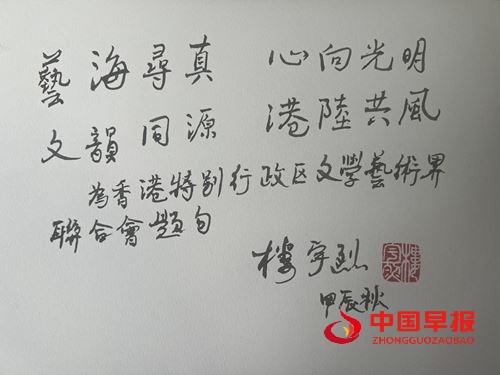 藝海尋真 心向光明
文韻同源 港陸共風
為香港特别行政区文学藝術界
聯合會題句
樓宇烈
甲辰秋
中国早报
ZHONGGUOZAOBAO